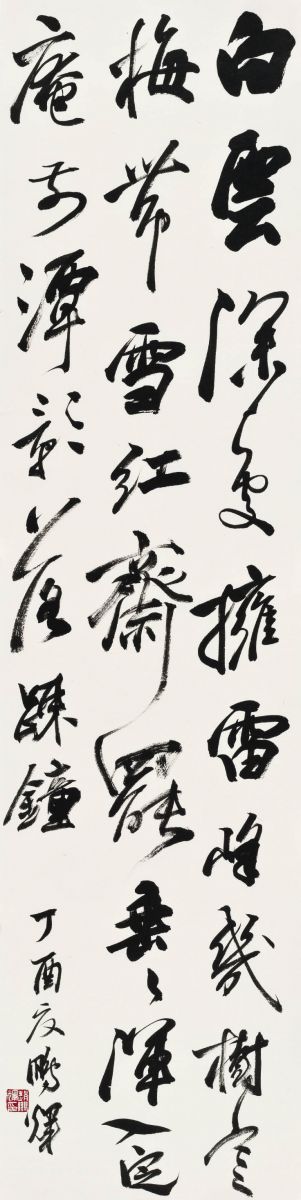 白雲深處擁雷峰幾樹寒
梅帶雪紅齋罷垂々渾入定
庵前潭影落踈鐘
丁酉夏鵬輝